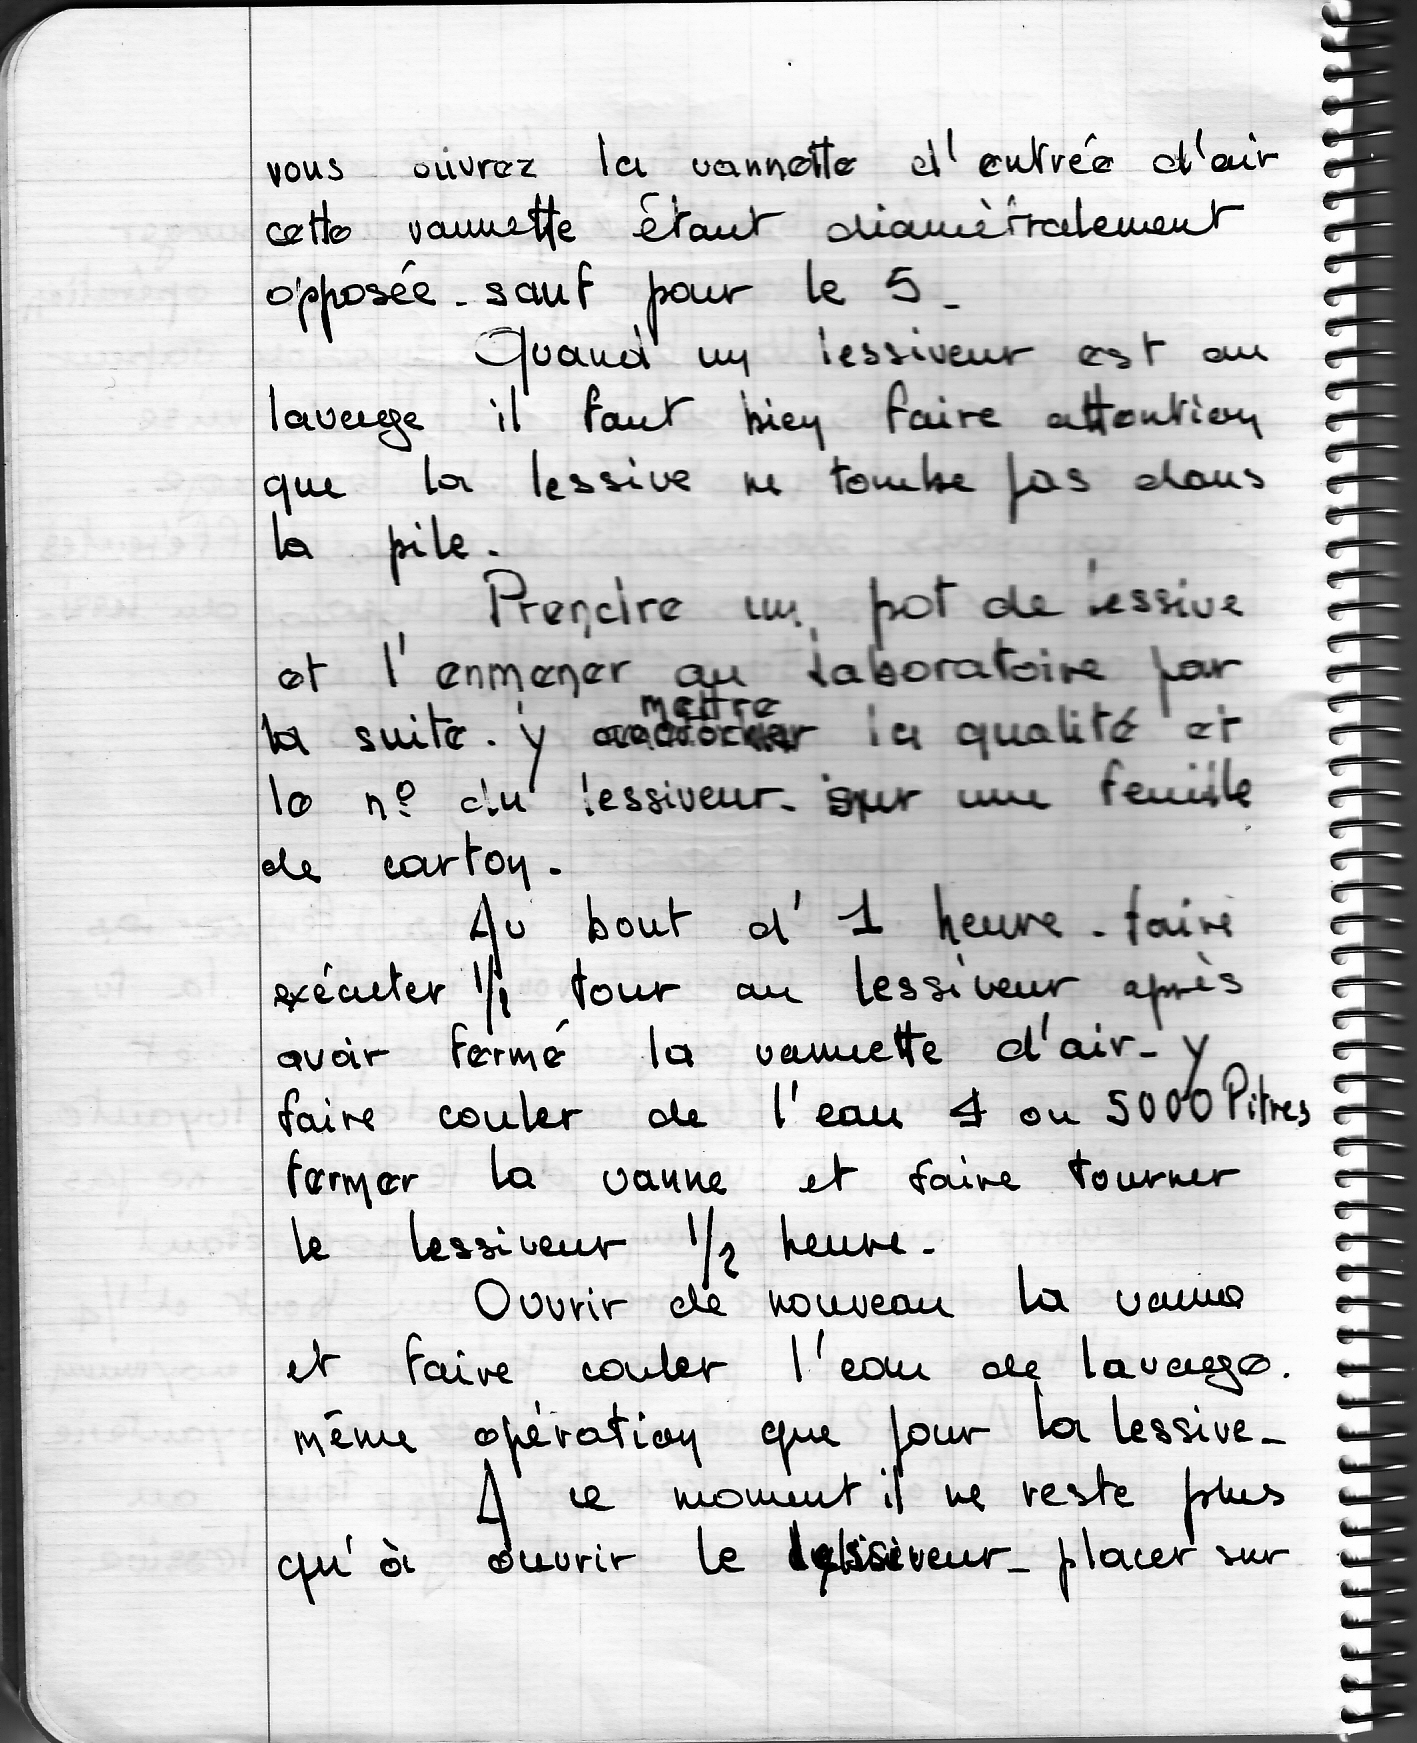 vous ouvrez la vannette d'entrée d'air
cette vannette étant diamètralement
opposée - sauf pour le 5 -
Quand un lessiveur est au
lavage il faut bien faire attention
que la lessive ne tombe pas dans
la pile.
Prendre un pot de lessive
et l'enmener au laboratoire par
mettre
la suite. y la qualité et
le n° du lessiveur - sur une feuille
de carton.
Au bout d'1 heure - faire
exécuter 1/1 tour au lessiveur après
avoir fermé la vannette d'air - y
faire couler de l'eau 4 ou 5000 litres
fermer la vanne et faire tourner
le lessiveur 1/2 heure.
Ouvrir de nouveau la vanne
et faire couler l'eau de lavage.
même opération que pour la lessive -
A ce moment il ne reste plus
qu'à ouvrir le lessiveur - placer sur